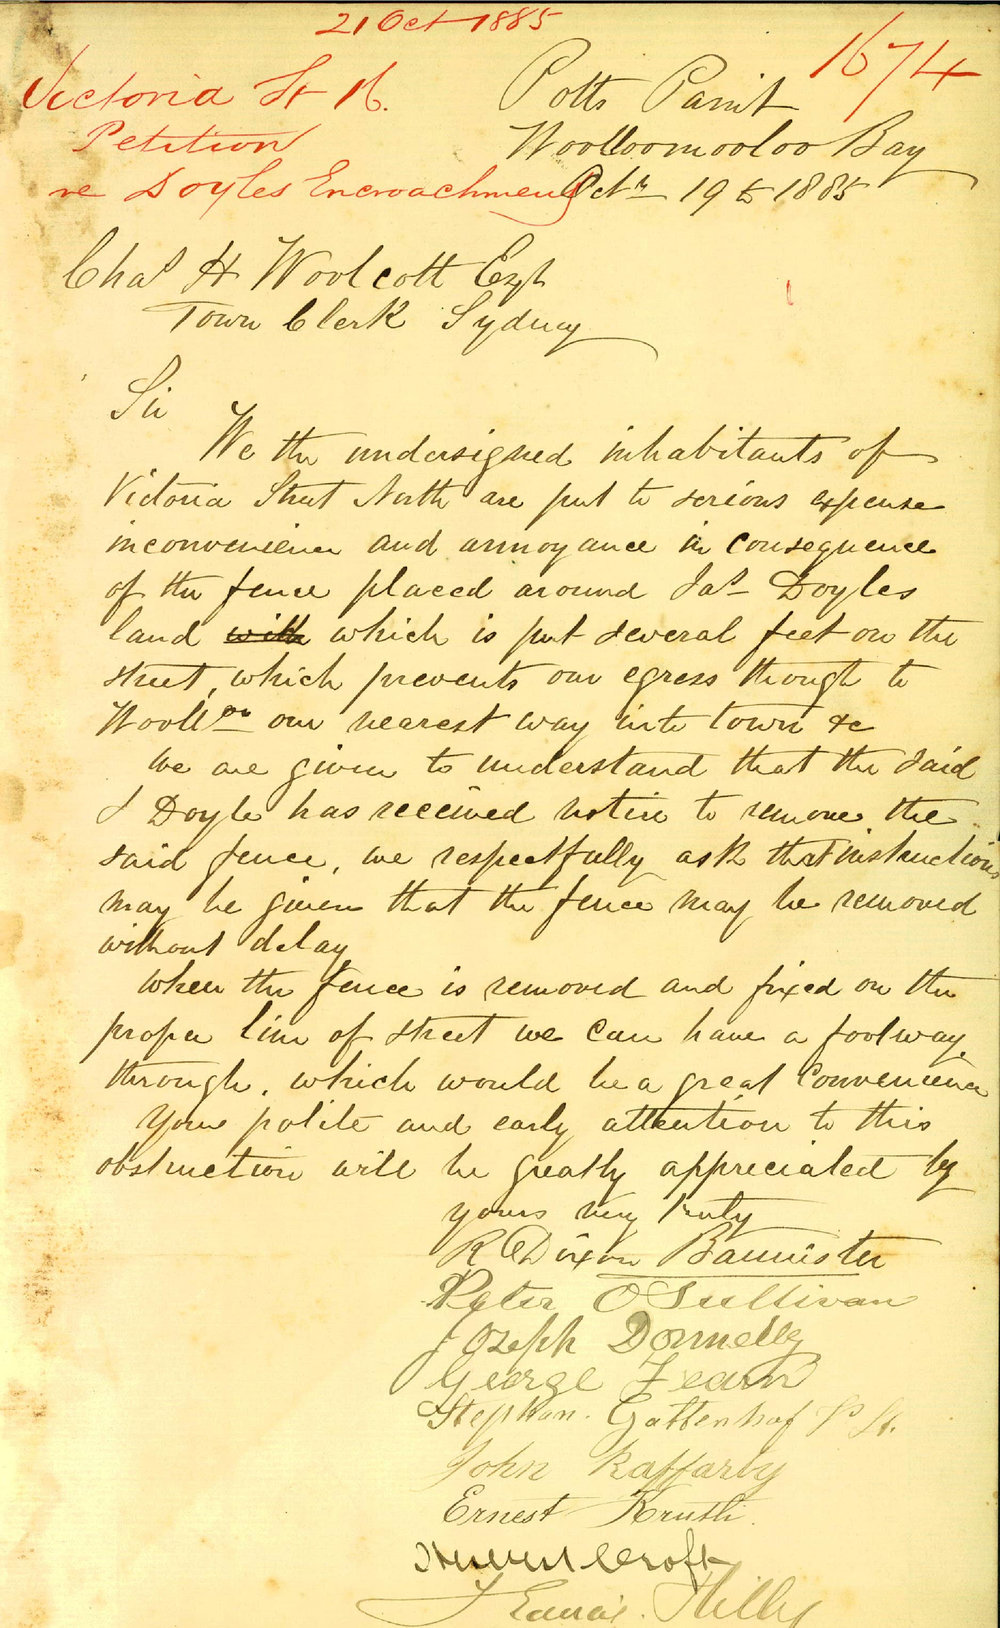 21 Oct 1885
1674
Victoria St N.
Petition
re Doyles Encroachment
Potts Point
Woolloomooloo Bay
Octr 19th 1885
Chas H Woolcott Esqr
Town Clerk Sydney
Sir
We the undersigned inhabitants of
Victoria Street North are put to serious expense
inconvenience and annoyance in consequence
of the fence placed around Jas Doyles
land with which is put several feet on the
street, which prevents our egress through to
Woolloo our nearest way into town &c
we are given to understand that the said
J Doyle has received notice to remove the
said fence, we respectfully ask that instructions
may be given that the fence may be removed
without delay
when the fence is removed and fixed on the
proper line of street we can have a footway
through, which would be a great convenience
Your polite and early attention to this
obstruction will be greatly appreciated by
yours very truly
R Dixon Bannister
Peter O Sullivan
Joseph Donnelly
George Fearn
Stephan Gattenhof
John Raffarby
Ernest
Croft
Francis